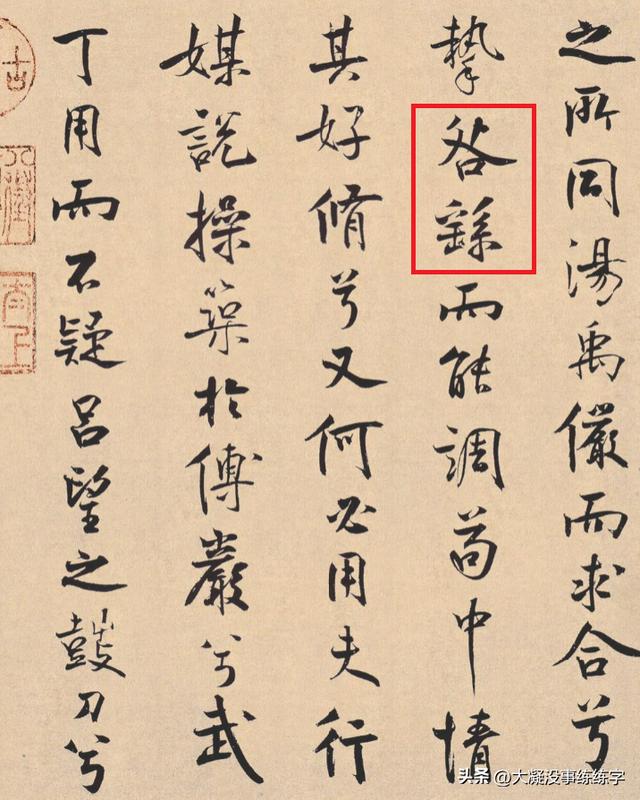 之所同湯禹儼而求合兮
摯咎繇而能調苟中情
其好脩兮又何必用夫行
媒說操築於傅巖兮武
丁用而不疑呂望之鼓刀兮
头条 @大凝没事练练字